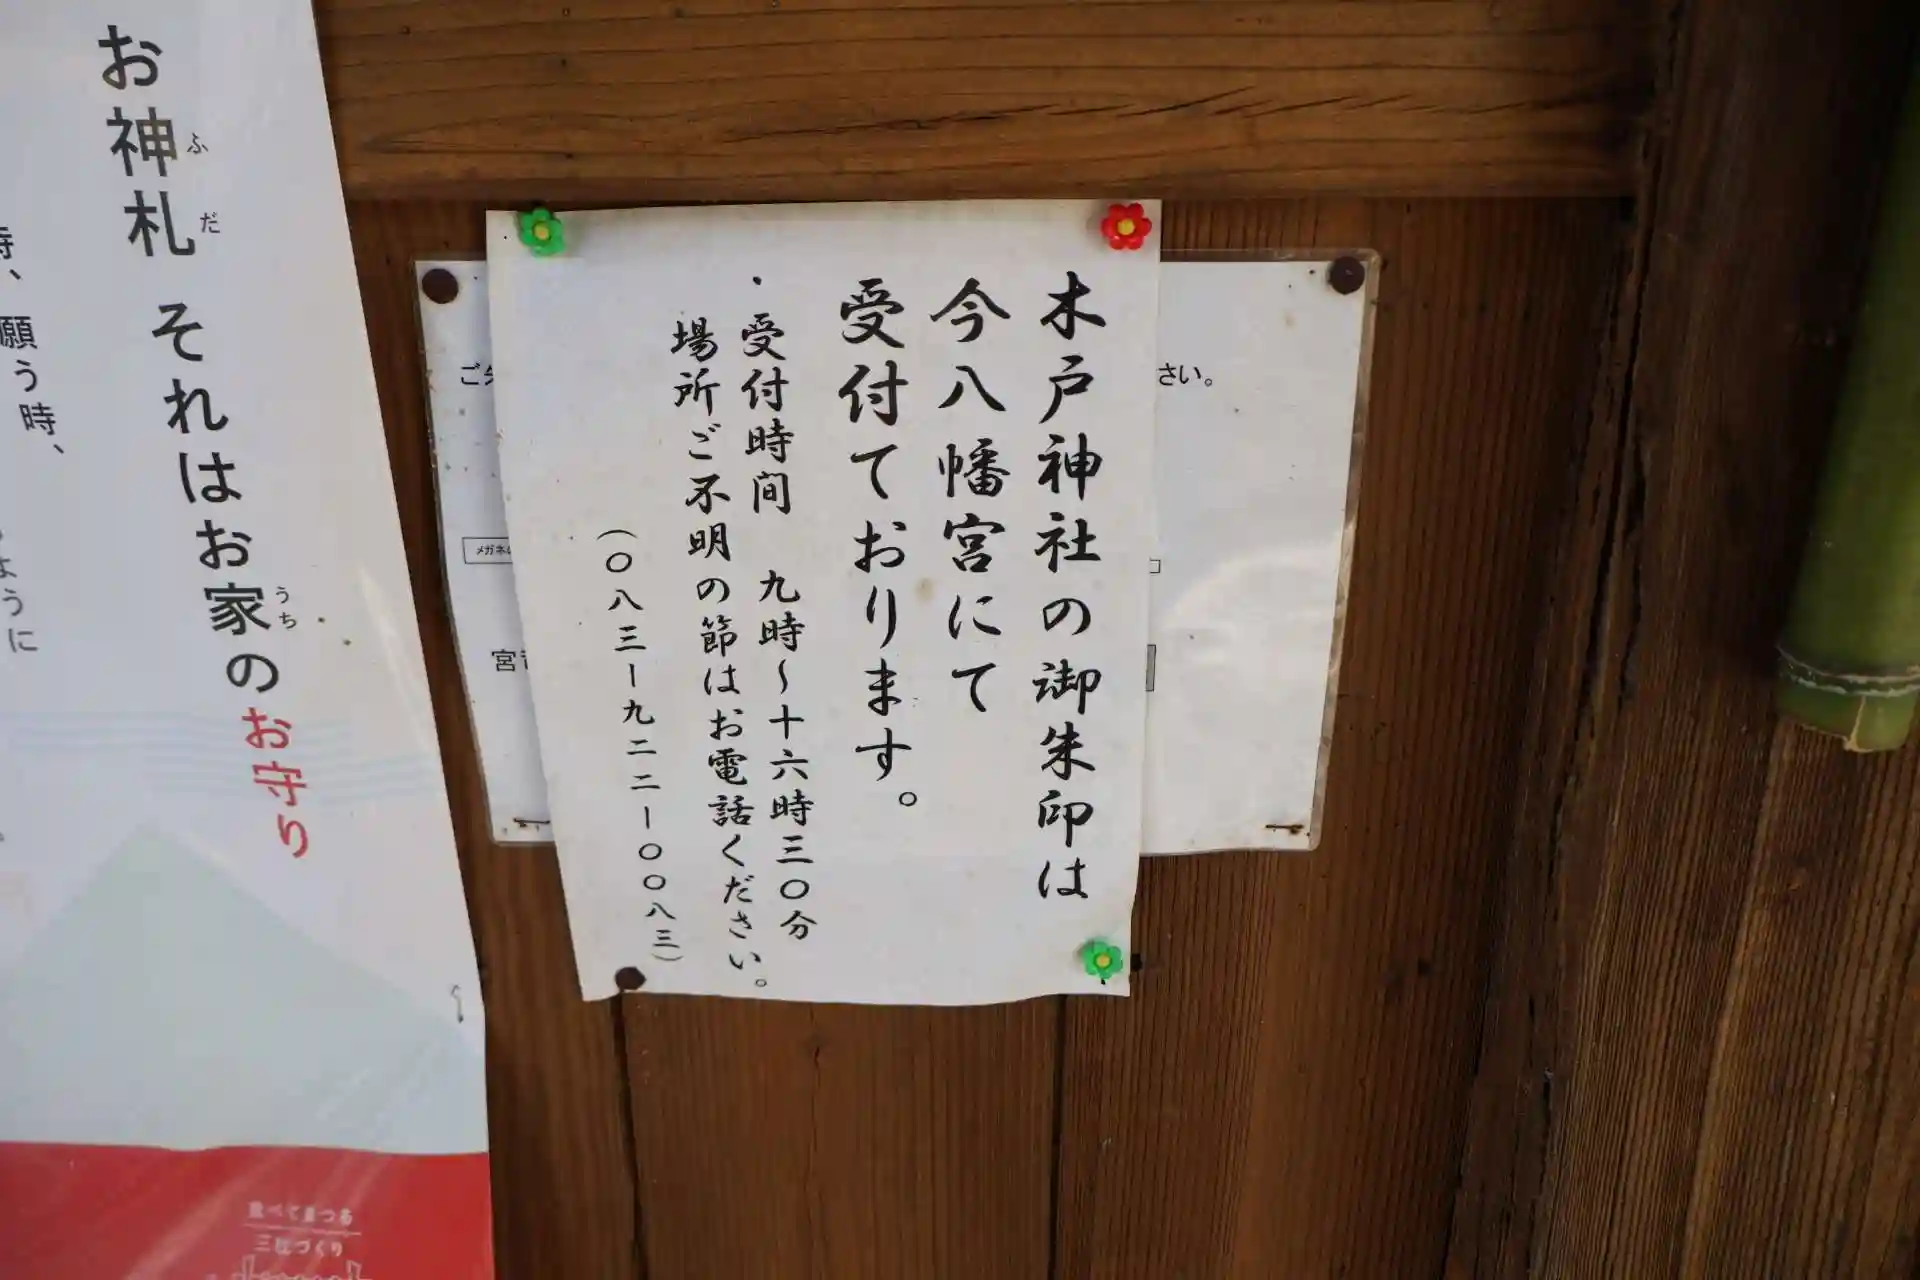 木戸神社の御朱印は
今八幡宮にて
受付ております。
・受付時間 九時~十六時三〇分
場所ご不明の節はお電話ください。
(〇八三ー九二二ー〇〇八三)
さい。
メガネ
宮
お神札 それはお家のお守り
ふだ
うち
時、願う時、
ように
並べてまつる
三社づくり